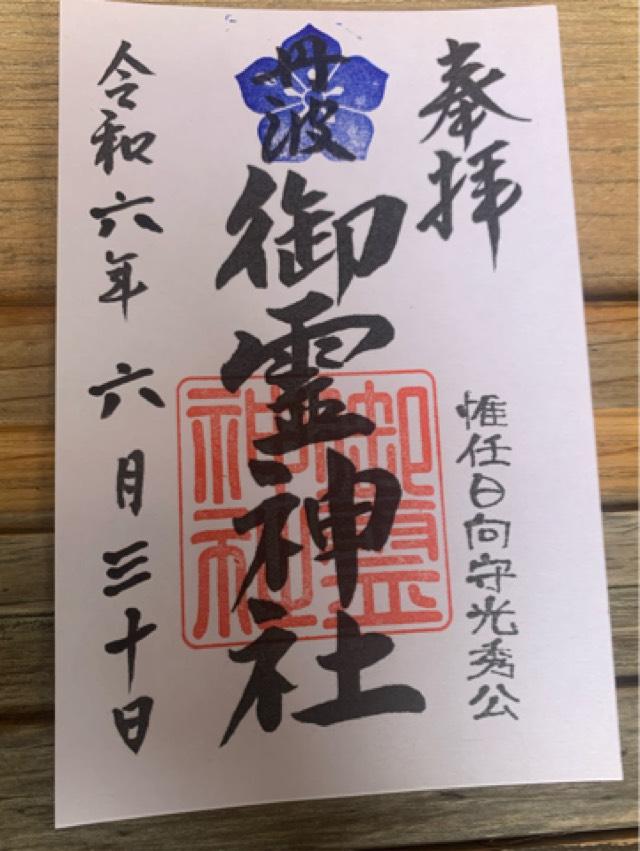 奉拝
惟任日向守光秀公
丹波
御霊神社
御霊神社
令和六年六月三十日